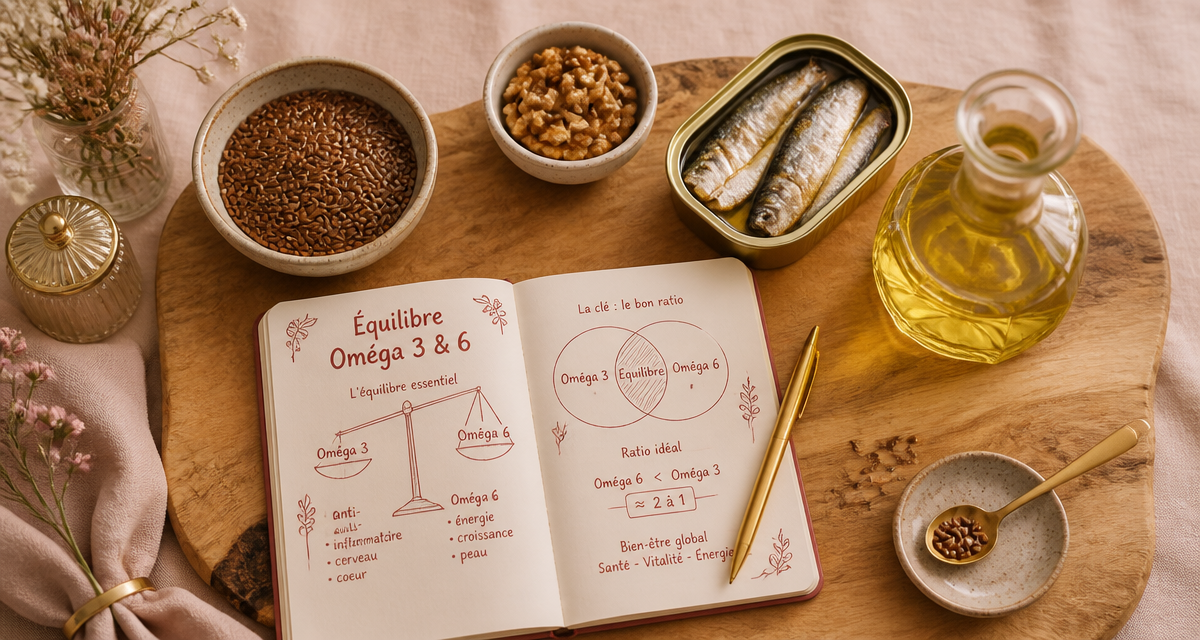 Équilibre
Oméga 3 & 6
L'équilibre essentiel
Oméga 3
Oméga 6
Anti-
inflammatoire
• cerveau
• coeur
Oméga 6
• énergie
• croissance
• peau
La clé : le bon ratio
Oméga 3
Équilibre
Oméga 6
Ratio idéal
Oméga 6 < Oméga 3
≈ 2 à 1
Bien-être global
Santé - Vitalité - Énergie